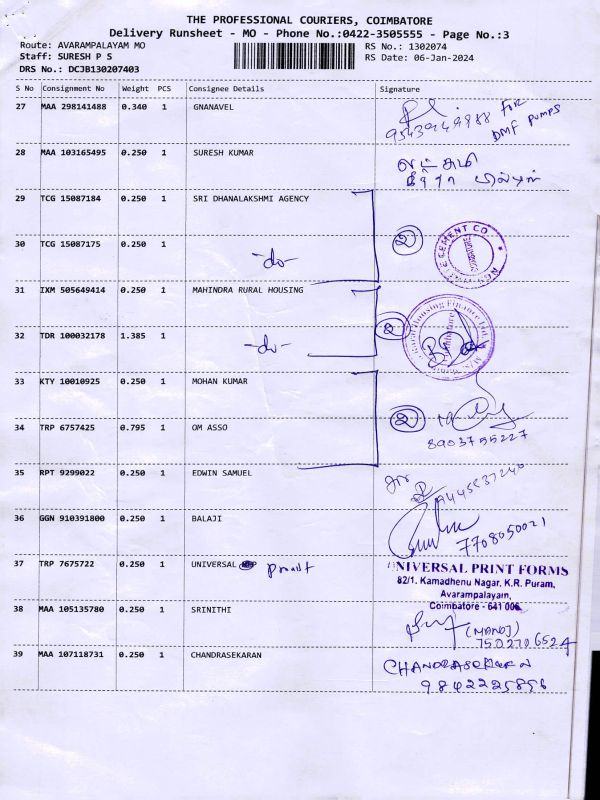 THE PROFESSIONAL COURIERS, COIMBATORE
Delivery Runsheet - MO - Phone No.:0422-3505555 - Page No.:3
Route: AVARAMPALAYAM MO
RS No.: 1302074
Staff: SURESH P S
RS Date: 06-Jan-2024
DRS No.: DCJB130207403
S No Consignment No Weight PCS Consignee Details Signature
27 MAA 298141488 0.340 1 GNANAVEL
FOR
DMF PUMPS
28 MAA 103165495 0.250 1 SURESH KUMAR
29 TCG 15087184 0.250 1 SRI DHANALAKSHMI AGENCY
30 TCG 15087175 0.250 1 -do- 2
CEMENT CO
31 IXM 505649414 0.250 1 MAHINDRA RURAL HOUSING
Rural Housing Finance Ltd
32 TDR 100032178 1.385 1 -do- 2
33 KTY 10010925 0.250 1 MOHAN KUMAR
34 TRP 6757425 0.795 1 OM ASSO 2
8903755227
35 RPT 9299022 0.250 1 EDWIN SAMUEL
36 GGN 910391800 0.250 1 BALAJI
7708050021
37 TRP 7675722 0.250 1 UNIVERSAL print
UNIVERSAL PRINT FORMS
82/1. Kamadhenu Nagar, K.R. Puram,
Avarampalayain,
Coimbatore - 641 006.
38 MAA 105135780 0.250 1 SRINITHI
(MANOJ)
7502706524
39 MAA 107118731 0.250 1 CHANDRASEKARAN
CHANDRASEKARAN
9842225856